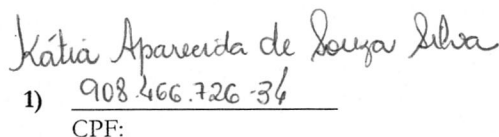 Kátia Aparecida de Souza Silva
1) 908.466.726-34
CPF: